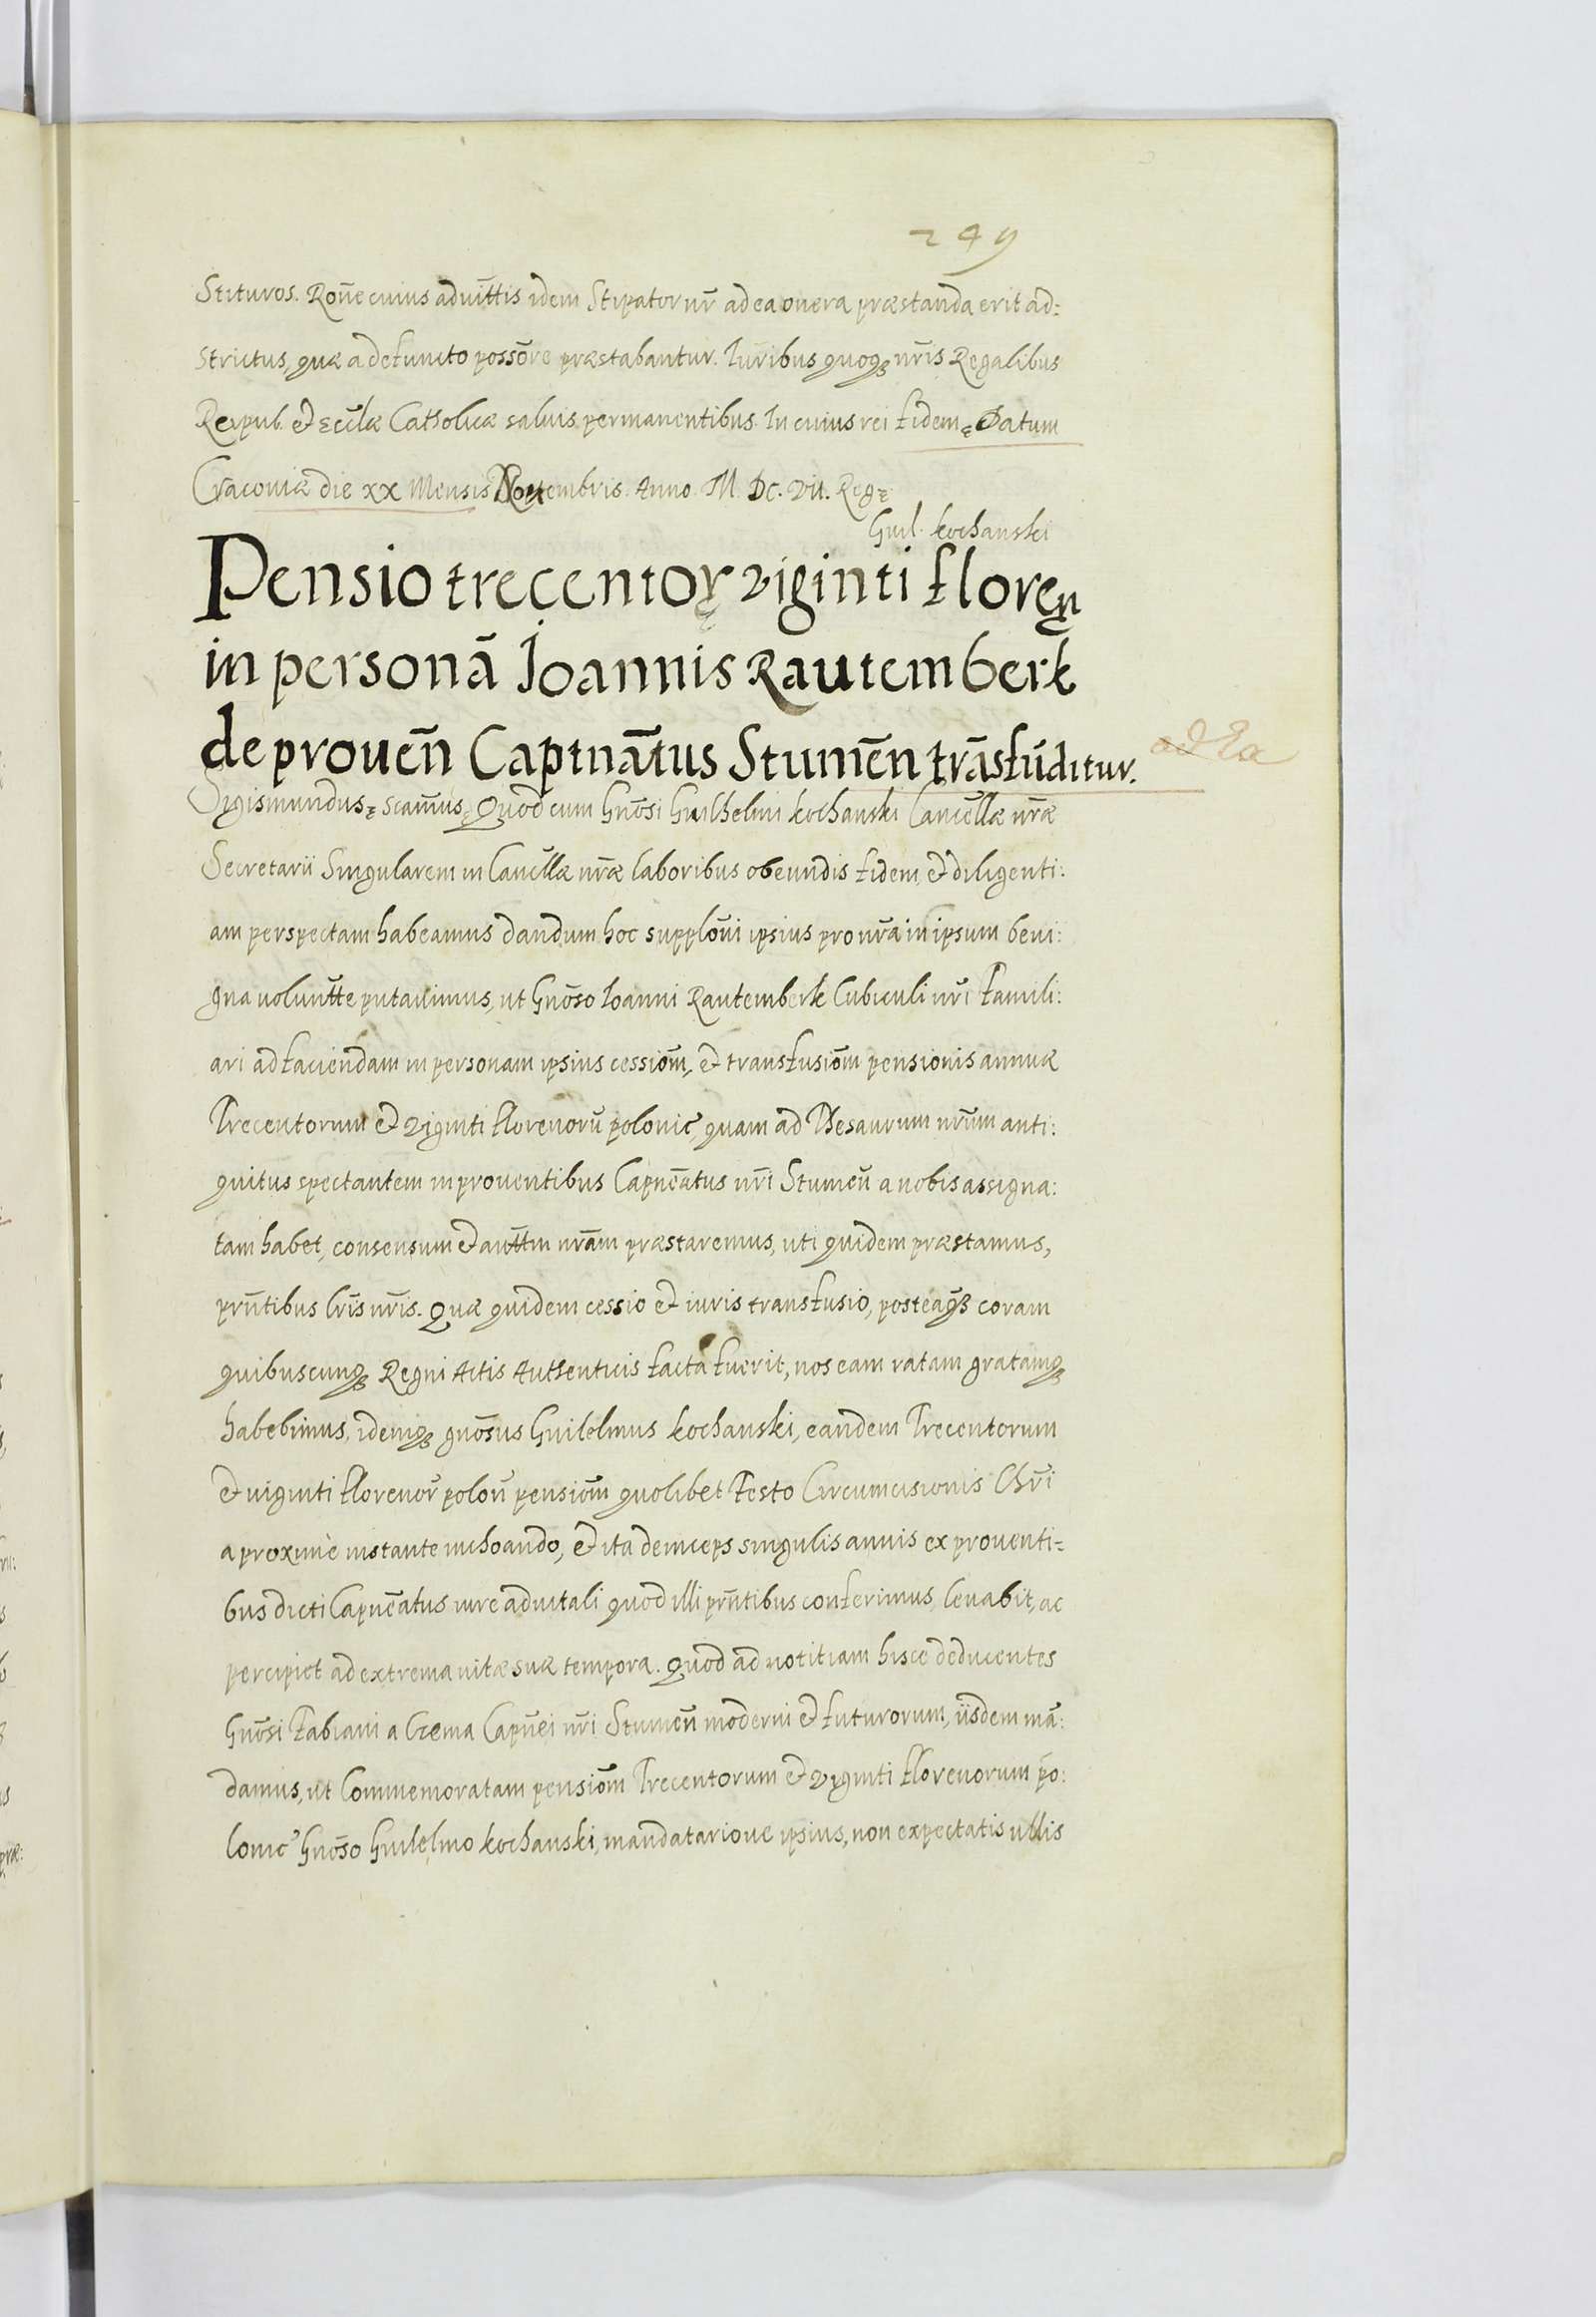 249
Stituros. Rõne cuius aduittis idem Stipator nr̃ ad ea onera præstanda erit ad:
strictus, quæ a defuncto possõre præstabantur. Iuribus quoq̃ nr̃is Regalibus
Reipub. et Eccl̃æ Catholicæ saluis permanentibus. In cuius rei fidem ę Datum
Cracouiæ die xx Mensis Nouembris. Anno M. DC. VII. Regę
Guil. kochanski
Pensio trecentoꝝ viginti florẽn
in personã Ioannis Rautemberk
de prouẽn Captnãtus Stumẽn trãsfũditur.
ad Ea
Sigismundus ę scam̃us ę Quod cum Gnõsi Guilhelmi kochanski Cancell̃æ nr̃æ
Secretarii Singularem in Cancell̃æ nr̃æ laboribus obeundis fidem, et diligenti:
am perspectam habeamus dandum hoc supplõni ipsius pro nr̃a in ipsum beni:
gna volunt̃te putauimus, ut Gnõso Ioanni Rautemberk Cubiculi nr̃i Famili:
ari ad faciendam in personam ipsius cessiõm, et transfusiõm pensionis annuæ
Trecentorum et viginti florenorũ polonic̃, quam ad Thesaurum nr̃um anti:
quitus spectantem in prouentibus Capnẽatus nr̃i Stumeñ a nobis assigna:
tam habet, consensum et autt̃m nr̃am præstaremus, uti quidem præstamus,
prñtibus lr̃is nr̃is. Quæ quidem cessio et iuris transfusio, posteaq̃ coram
quibuscunq̃ Regni Actis Authenticis facta fuerit, nos eam ratam gratamq̃
habebimus, idemq̃ gnõsus Guilelmus kochanski, eandem Trecentorum
et uiginti florenor̃ poloñ pensiõm quolibet Festo Circumcisionis Chr̃i
a proximè instante inchoando, et ita deinceps singulis annis ex prouenti=
bus dicti Capnẽatus iure aduitali quod illi prñtibus conferimus, leuabit, ac
percipiet ad extrema uitæ suæ tempora. Quod ad notitiam hisce deducentes
Gnõsi Fabiani a Czema Capñei nr̃i Stumeñ moderni et futurorum, iisdem mã:
damus, ut Commemoratam pensiõm Trecentorum et viginti florenorum po:
lonic̃ Gnõso Guilelmo kochanski, mandatarioue ipsius, non expectatis ullis